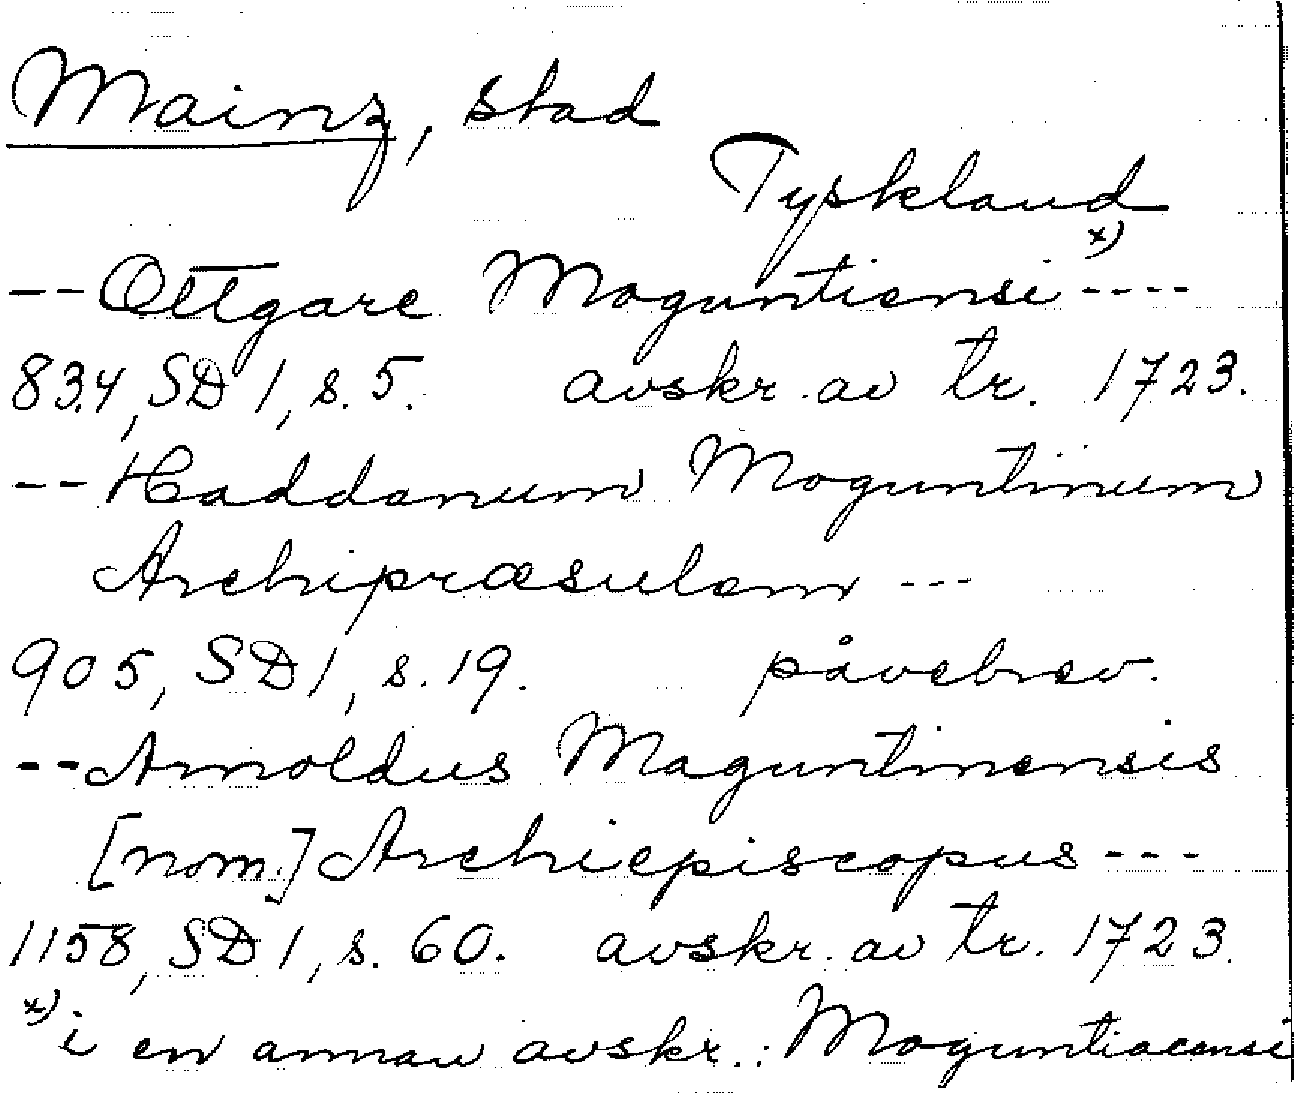 Mainz, stad
Tyskland
-- Ottgare Moguntiensi x) ----
834, SD 1, s. 5. avskr. av tr. 1723.
-- Haddanum Moguntinum
Archipræsulem ---
905, SD 1, s. 19. påvebrev.
-- Arnoldus Maguntinensis
[nom.] Archiepiscopus ---
1158, SD 1, s. 60. avskr. av tr. 1723.
x) i en annan avskr.: Moguntiacensi